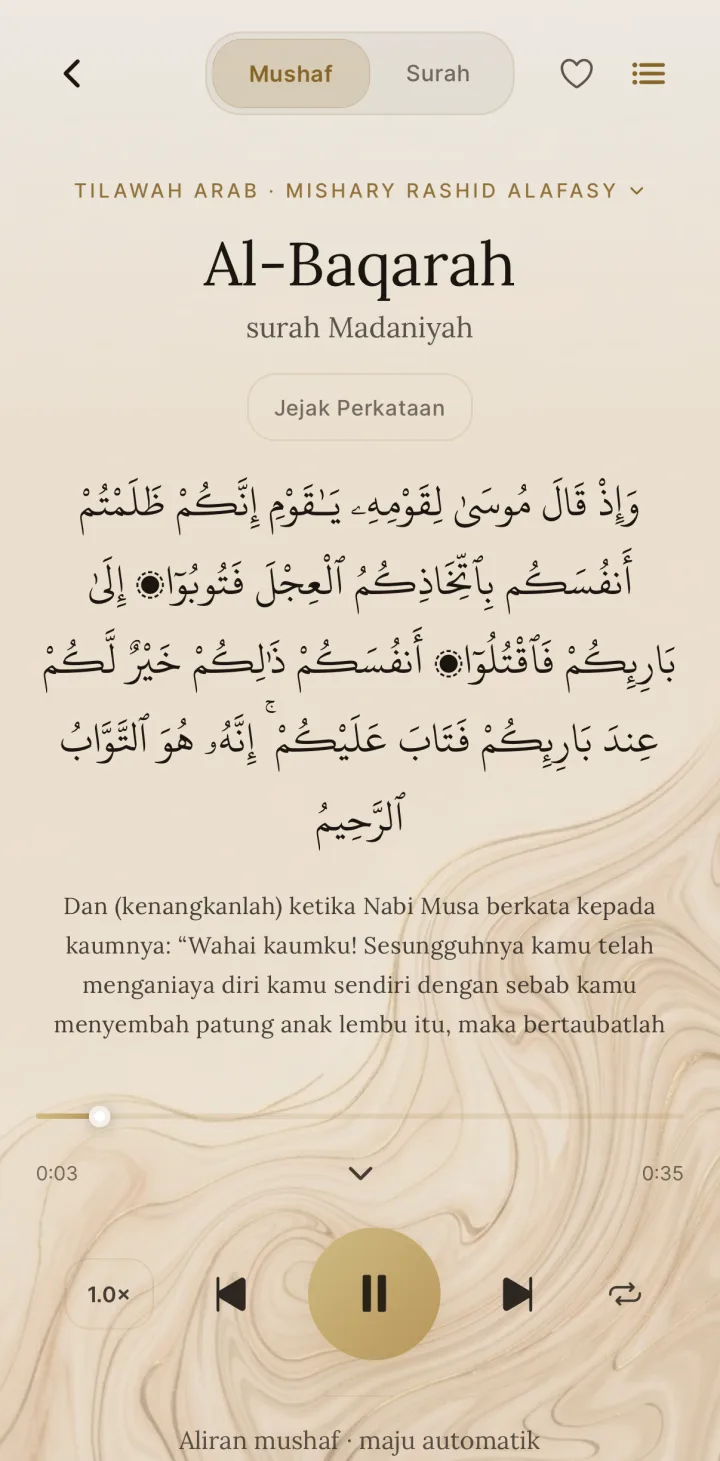 Mushaf Surah
TILAWAH ARAB · MISHARY RASHID ALAFASY
Al-Baqarah
surah Madaniyah
Jejak Perkataan
وَإِذْ قَالَ مُوسَىٰ لِقَوْمِهِۦ يَـٰقَوْمِ إِنَّكُمْ ظَلَمْتُمْ
أَنفُسَكُم بِٱتِّخَاذِكُمُ ٱلْعِجْلَ فَتُوبُوٓا۟ إِلَىٰ
بَارِئِكُمْ فَٱقْتُلُوٓا۟ أَنفُسَكُمْ ذَٰلِكُمْ خَيْرٌ لَّكُمْ
عِندَ بَارِئِكُمْ فَتَابَ عَلَيْكُمْ ۚ إِنَّهُۥ هُوَ ٱلتَّوَّابُ
ٱلرَّحِيمُ
Dan (kenangkanlah) ketika Nabi Musa berkata kepada
kaumnya: “Wahai kaumku! Sesungguhnya kamu telah
menganiaya diri kamu sendiri dengan sebab kamu
menyembah patung anak lembu itu, maka bertaubatlah
0:03 0:35
1.0×
Aliran mushaf · maju automatik